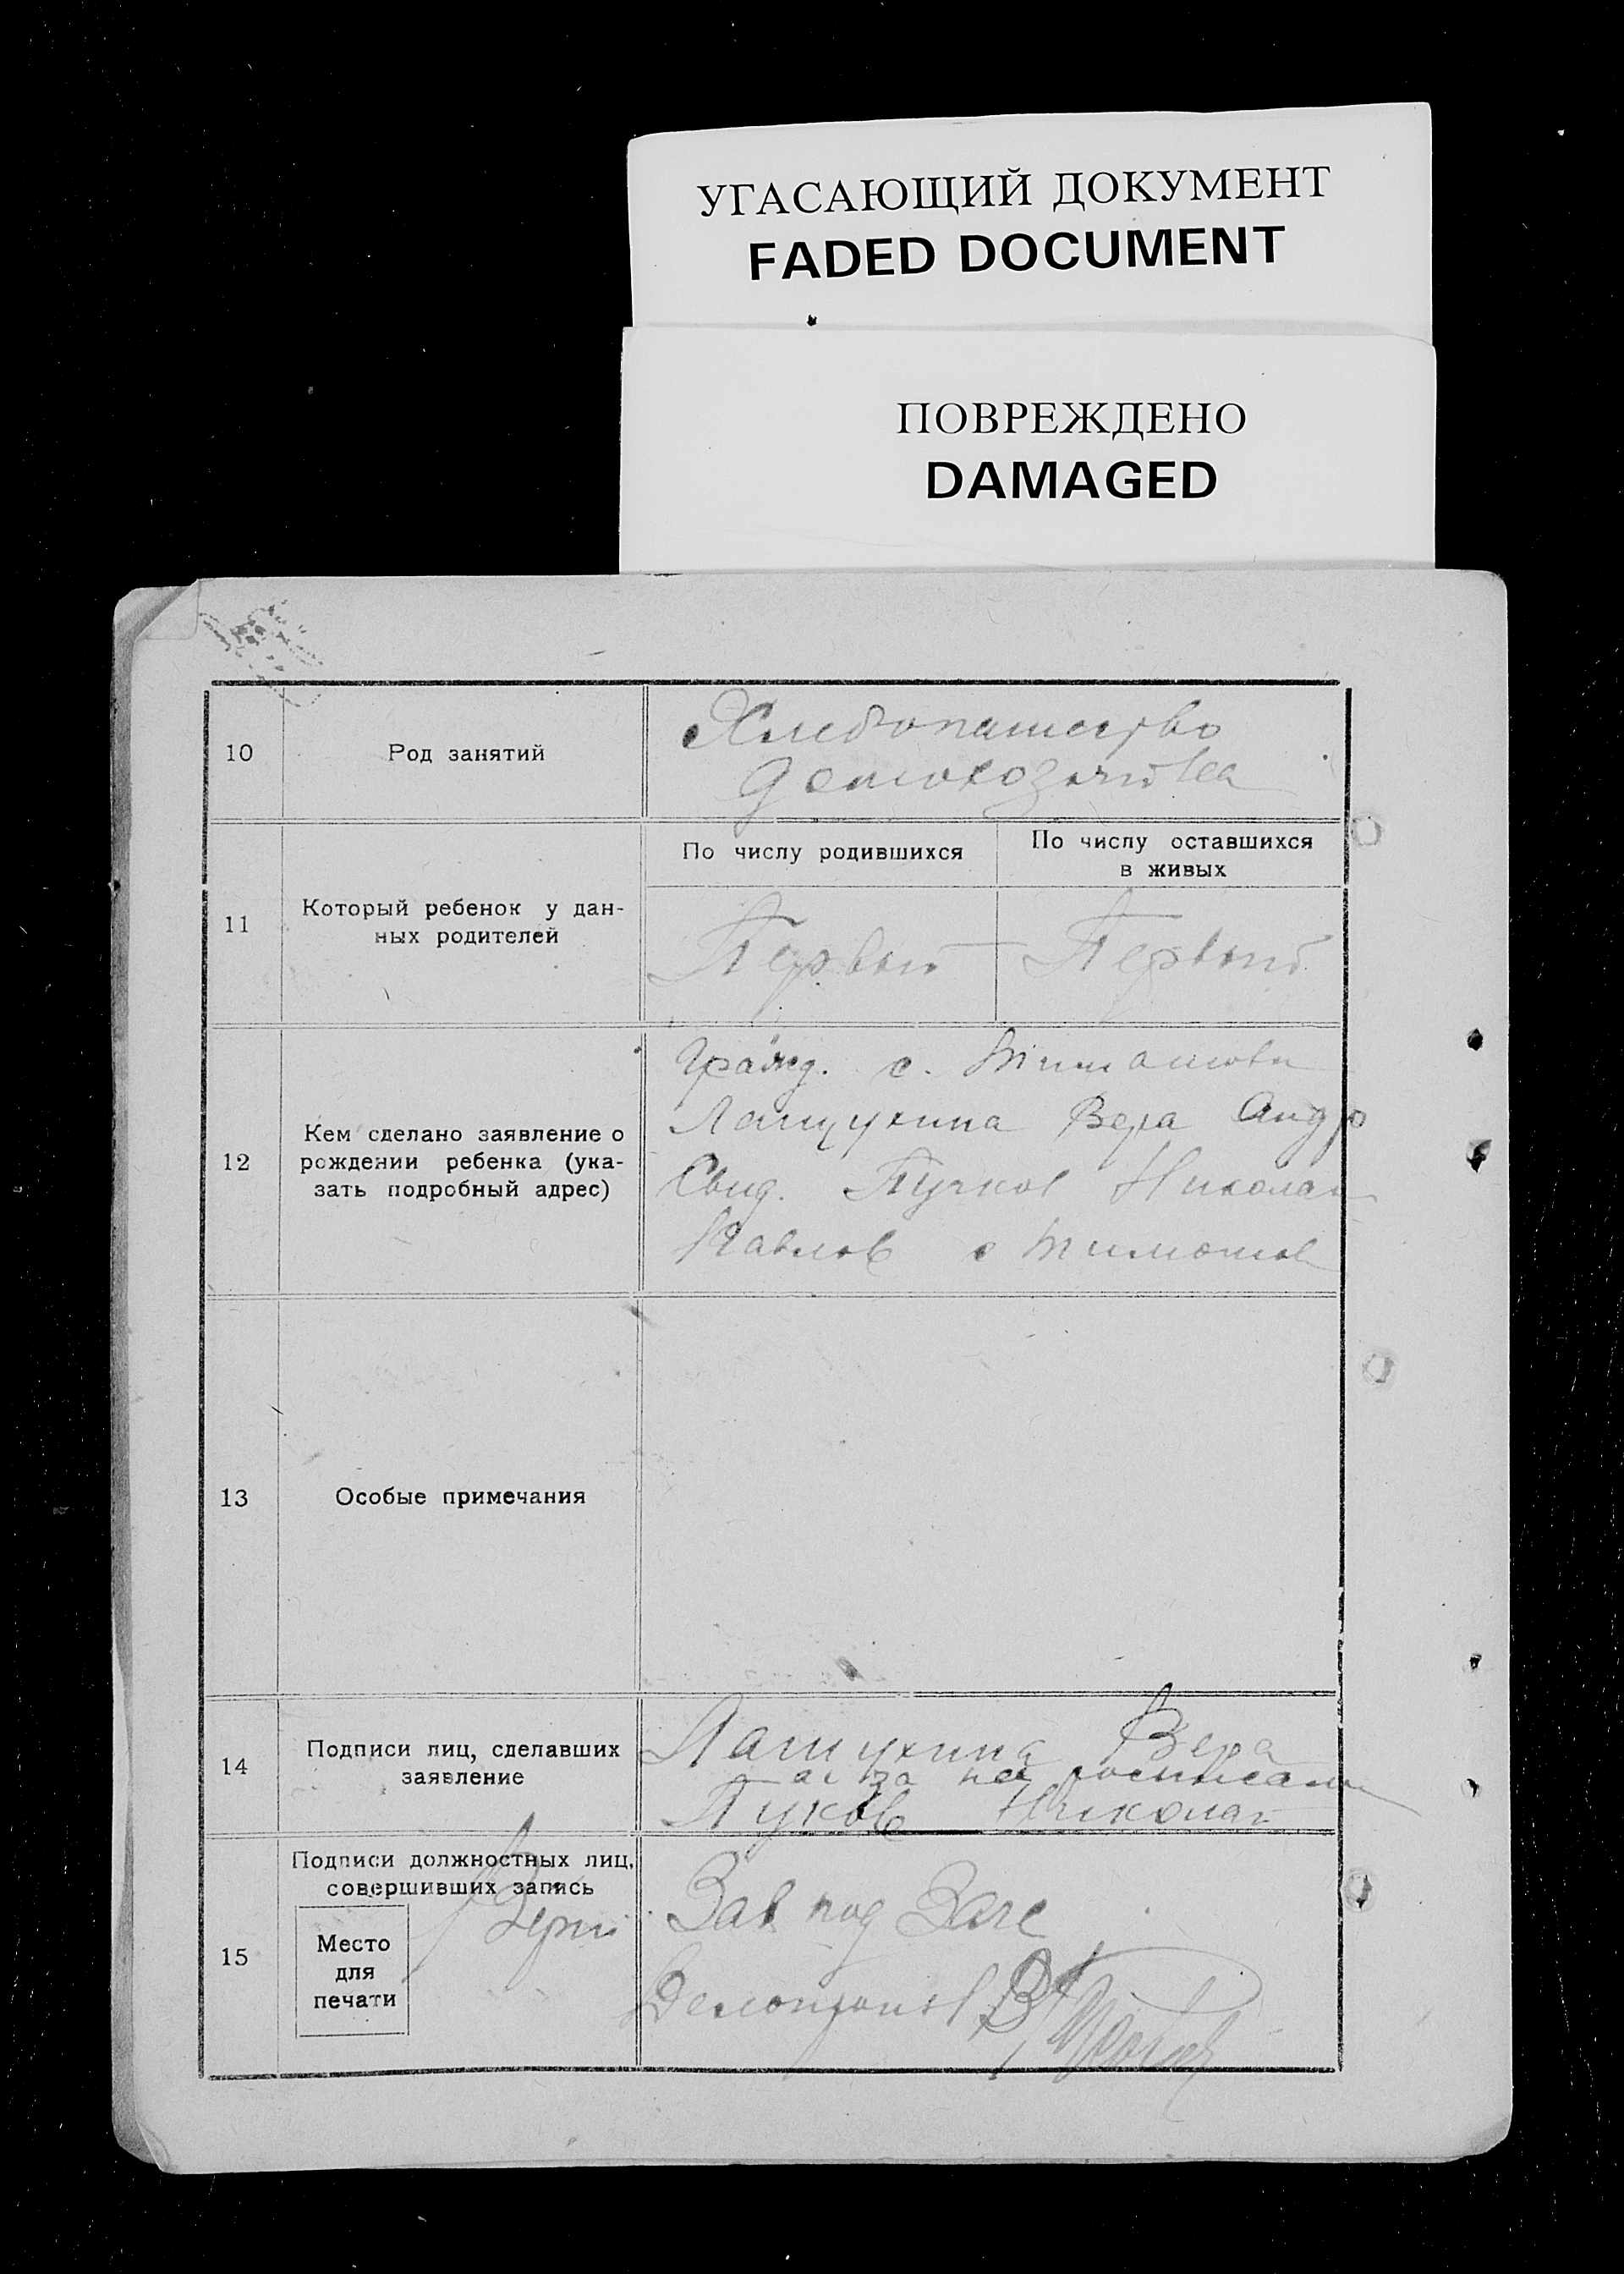 УГАСАЮЩИЙ ДОКУМЕНТ
FADED DOCUMENT
ПОВРЕЖДЕНО
DAMAGED
10
Род занятий
Хлебопашество
домохозяйка
11
Который ребенок у дан-
ных родителей
По числу родившихся
По числу оставшихся
в живых
Первый
Первый
12
Кем сделано заявление о
рождении ребенка (ука-
зать подробный адрес)
Гражд. с.
Вера Андр
Свид. Пучков Николай
Павлов с
13
Особые примечания
14
Подписи лиц, сделавших
заявление
Вера
за
Николай
15
Подписи должностных лиц,
совершивших запись
Место
для
печати
Зав под Загс